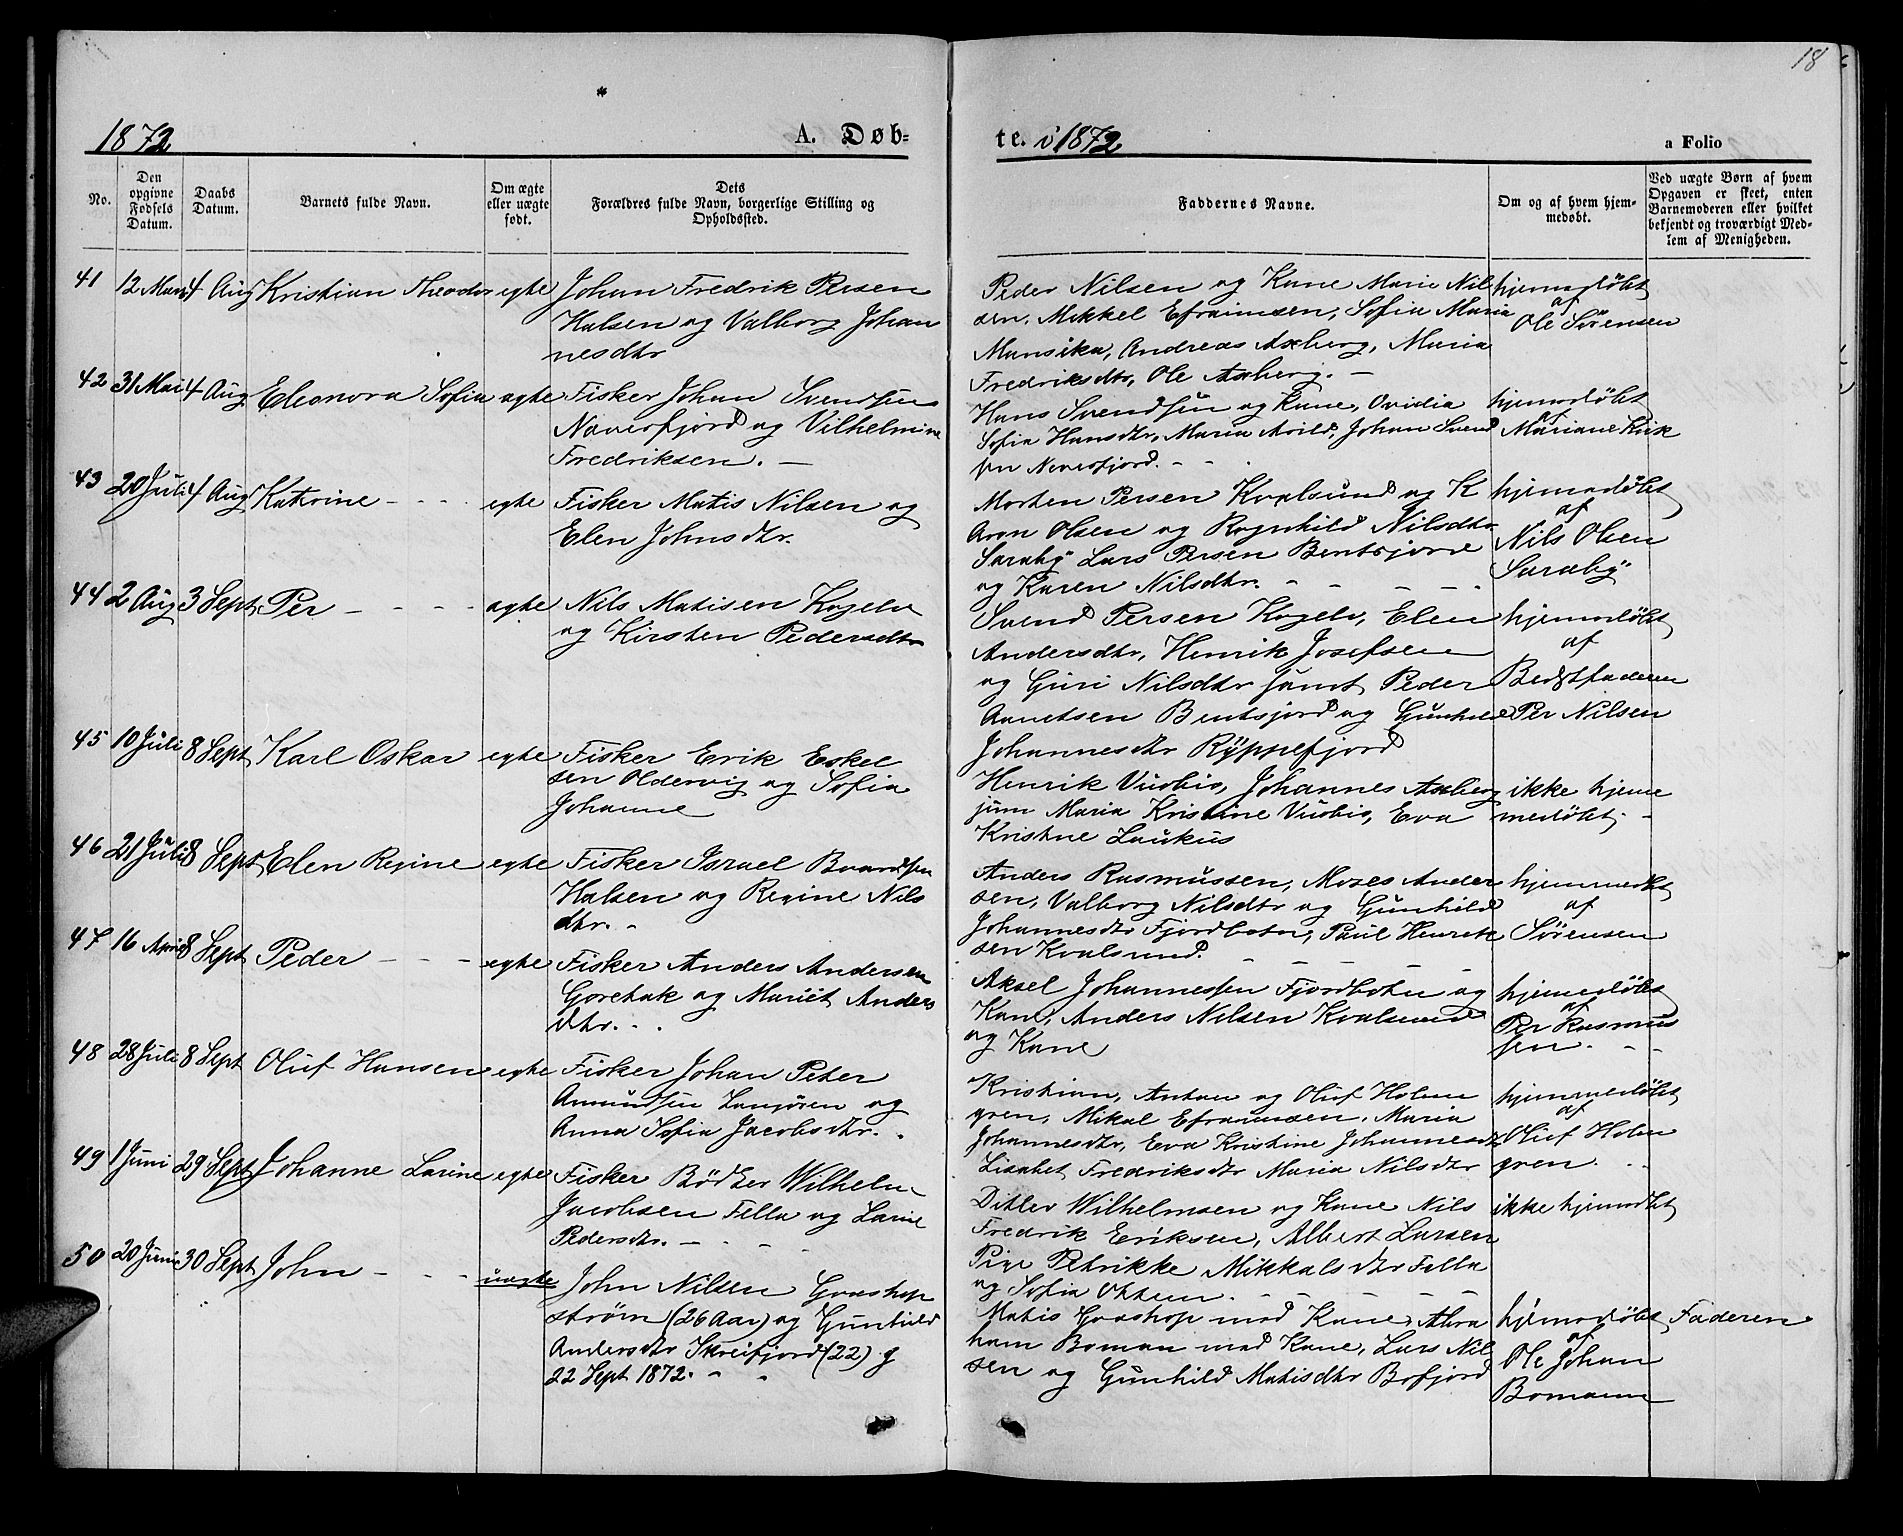 18
1872
A. Døb-
te. i 1872
a Folio
No.
Den
opgivne
Fødsels
Datum.
Daabs
Datum.
Barnets fulde Navn.
Om ægte
eller uægte
født.
Dets
Forældres fulde Navn, borgerlige Stilling og
Opholdssted.
Faddernes Navne.
Om og af hvem hjem-
medøbt.
Ved uægte Børn af hvem
Opgaven er skeet, enten
Barnemoderen eller hvilket
bekjendt og troværdigt Med-
lem af Menigheden.
41 12 Mars 4 Aug Kristian Theodor egte Johan Fredrik Persen
Halsen og Valborg Johan
nesdtr
Peder Nilsen og Kane Marie Nil
sen, Mikkel Efraimsen, Sofia Maria
Mansika, Andreas Axberg, Maria
Fredriksdtr, Ole Axberg. -
hjemmedöbt
af
Ole Sörensen
42 31 Mai 4 Aug Eleonora Sofia egte Fisker Johan Svendsen
Naverfjord og Vilhelmine
Fredriksen. -
Hans Svendsen og Kane, Ovidia
Sofia Hansdtr, Maria Arild, Johan Svend
sen Neverfjord. - -
hjemmedöbt
af
Mariane
43 20 Juli 4 Aug Katrine - - - egte Fisker Matis Nilsen og
Elen Johnsdtr.
Morten Persen Kvalsund og K
Aron Olsen og Rognhild Nilsdtr
Saraby Lars Persen Bentsjord
og Karen Nilsdtr. - - - -
hjemmedöbt
af
Nils Olsen
Saraby
44 2 Aug 3 Sept Per - - - - egte Nils Matisen Kogelv
og Kirsten Pedersdtr
Svend Persen Kogelv, Elen
Andersdtr, Henrik Josefsen
og Guri Nilsdtr samt Peder
Anetsen Bentsjord og Gunhild
Johannesdtr Ryppefjord
hjemmedöbt
af
Bedstfaderen
Per Nilsen
45 10 Juli 8 Sept Karl Oskar egte Fisker Erik Eskel
sen Oldervig og Sofia
Johanne
Henrik Vuobis, Johannes Axberg
jun Maria Kristine Vuobis, Eva
Kristine Laukus
ikke hjem
medöbt. -
46 21 Juli 8 Sept Elen Regine egte Fisker Israel
Halsen og Regine Nils
dtr. -
Anders Rasmussen, Moses Ander
sen, Valborg Nilsdtr og Gunhild
Johannesdtr Fjordbotn, Paul Henrik
sen Kvalsund. - - - -
hjemmedöbt
af
Sörensen
47 16 April 8 Sept Peder - - - egte Fisker Anders Andersen
Gorehak og Mariet Anders
dtr. - -
Aksel Johannessen Fjordbotn og
Kane, Anders Nilsen Kvalsund
og Kane
hjemmedöbt
af
Per Rasmus
sen. - -
48 28 Juli 8 Sept Oluf Hansen egte Fisker Johan Peter
Amundsen og
Anna Sofia Jacobsdtr. -
Kristian, Anton og Oluf Holm
gren, Mikal Efraimsen, Maria
Johannesdtr, Eva Kristine Johannesdtr
Lisabet Fredriksdtr Maria Nilsdtr
hjemmedöbt
af
Oluf Holm
gren. - -
49 1 Juni 29 Sept Johanne Larine egte Fisker Bödker Wilhelm
Jacobsen Fella og Larine
Pedersdtr. - - - -
Ditlev Wilhelmsen og Kane Nils
Fredrik Eriksen, Albert Larsen
Pige Petrikke Mikkalsdtr Fella
og Sofia - - - -
ikke hjemmedöbt
50 20 Juni 30 Sept John - - - uegte John Nilsen
ström (26 Aar) og Gunhild
Andersdtr Skreifjord (22) g
22 Sept 1872. - -
Matis med Kane, Abra
ham Boman med Kane, Lars Nil
sen og Gunhild Matisdtr Bofjord
hjemmedöbt
af
Ole Johan
Bomann
Faderen